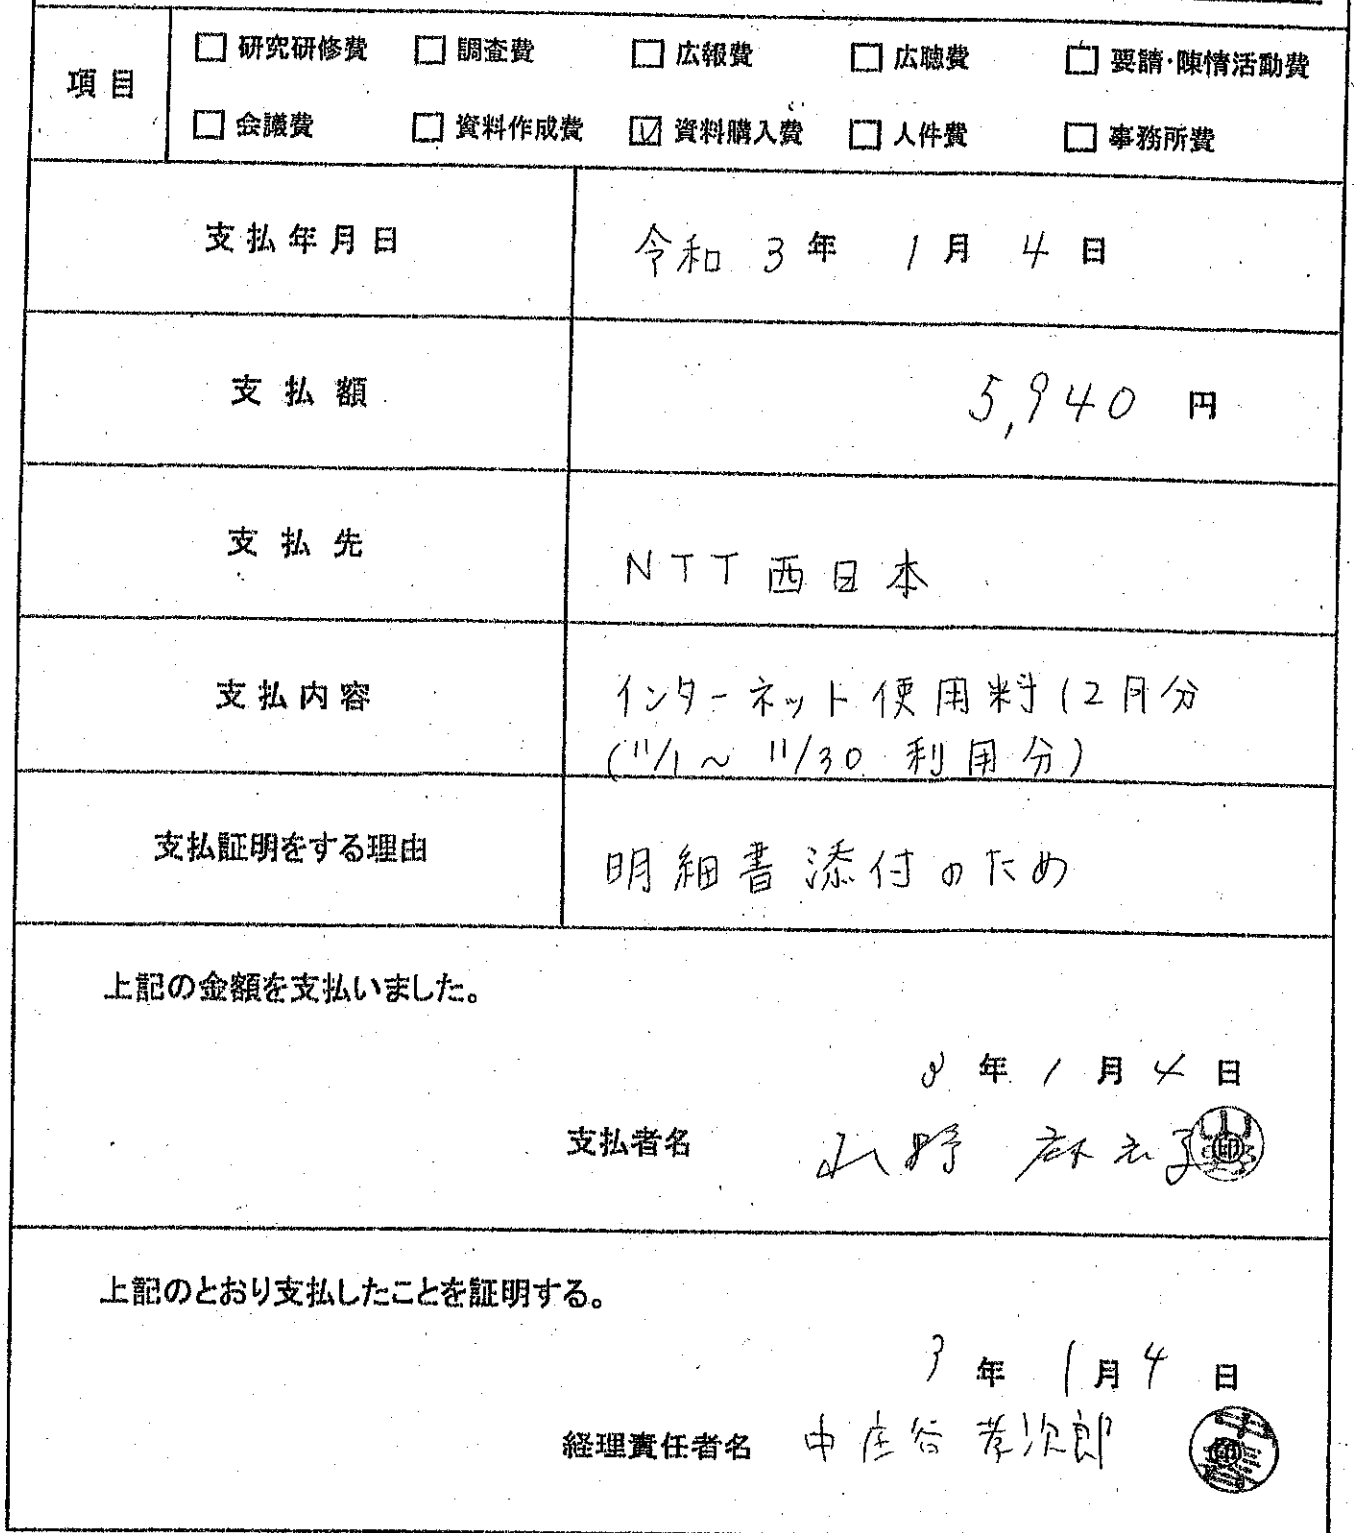 項目
□ 研究研修費 □ 調査費 □ 広報費 □ 広聴費 □ 要請・陳情活動費
□ 会議費 □ 資料作成費 ☑ 資料購入費 □ 人件費 □ 事務所費
支払年月日 令和 3 年 1 月 4 日
支払額 5,940 円
支払先 NTT西日本
支払内容 インターネット使用料12月分
(11/1～11/30 利用分)
支払証明をする理由 明細書添付のため
上記の金額を支払いました。
3 年 1 月 4 日
支払者名 山野 麻衣子
上記のとおり支払したことを証明する。
3 年 1 月 4 日
経理責任者名 中庄谷 孝次郎